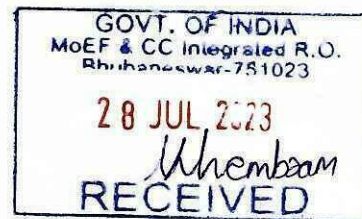 GOVT. OF INDIA
MoEF & CC Integrated R.O.
Bhubaneswar-751023
28 JUL 2023
RECEIVED